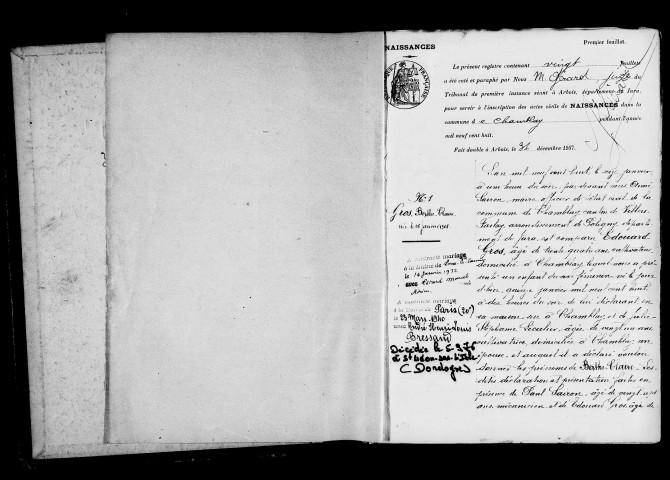 NAISSANCES
Premier feuillet.
Le présent registre contenant vingt feuillets
a été coté et paraphé par Nous M. juge du
Tribunal de première instance séant à Arbois, département du Jura,
pour servir à l'inscription des actes civils de NAISSANCES dans la
commune d e Chamblay pendant l'année
mil neuf cent huit.
Fait double à Arbois, le 31 décembre 1907.
N° 1
Gros, Berthe Claire
Née le 15 janvier 1908
a contracté mariage
à la mairie de
le 14 janvier 1932
avec
a contracté mariage
à la Mairie de Paris (20e)
le 23 Mars 1940
avec André Henri Louis
Bressand
Décédée le 5.9.76
à St Léon-sur-l'Isle
(Dordogne)
L'an mil neuf cent huit, le seize janvier
à une heure du soir, par devant nous
Sairon, maire officier de l'état civil de la
commune de Chamblay canton de Villers
Farlay, arrondissement de Poligny, départe
ment du Jura, est comparu Edouard
Gros, âgé de trente quatre ans, cultivateur
domicilié à Chamblay, lequel nous a pré
senté un enfant du sexe féminin né le jour
d'hier, quinze janvier mil neuf cent huit
à dix heures du soir de lui déclarant, en
sa maison sise à Chamblay, et de
Stéphanie Lecuiller, âgée de vingt un ans
cultivatrice, domiciliée à Chamblay, son
épouse, et auquel il a déclaré vouloir
donner les prénoms de Berthe Claire. Les
dites déclaration et présentation faites en
présence de Paul Sairon, âgé de vingt sept
ans, mécanicien, et de Edouard Gros, âgé de